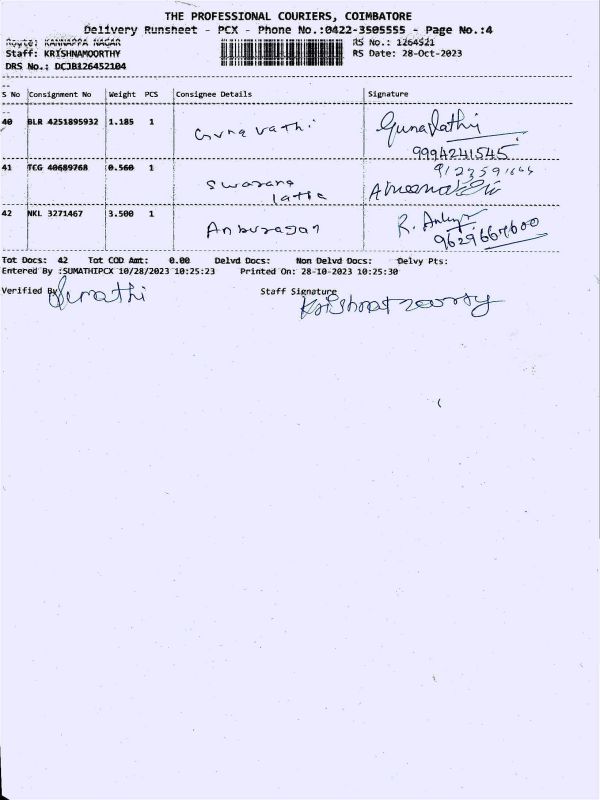 THE PROFESSIONAL COURIERS, COIMBATORE
Delivery Runsheet - PCX - Phone No.:0422-3505555 - Page No.:4
Route: KANNAPPA NAGAR RS No.: 1264521
Staff: KRISHNAMOORTHY RS Date: 28-Oct-2023
DRS No.: DCJB126452104
S No Consignment No Weight PCS Consignee Details Signature
40 BLR 4251895932 1.185 1 Gunavathi Gunavathi
9994241545
41 TCG 40689768 0.560 1 Swarana
latha
42 NKL 3271467 3.500 1 Anburasan R.
9629667600
Tot Docs: 42 Tot COD Amt: 0.00 Delvd Docs: Non Delvd Docs: Delvy Pts:
Entered By :SUMATHIPCX 10/28/2023 10:25:23 Printed On: 28-10-2023 10:25:30
Verified By Sumathi Staff Signature Krishnamoorthy